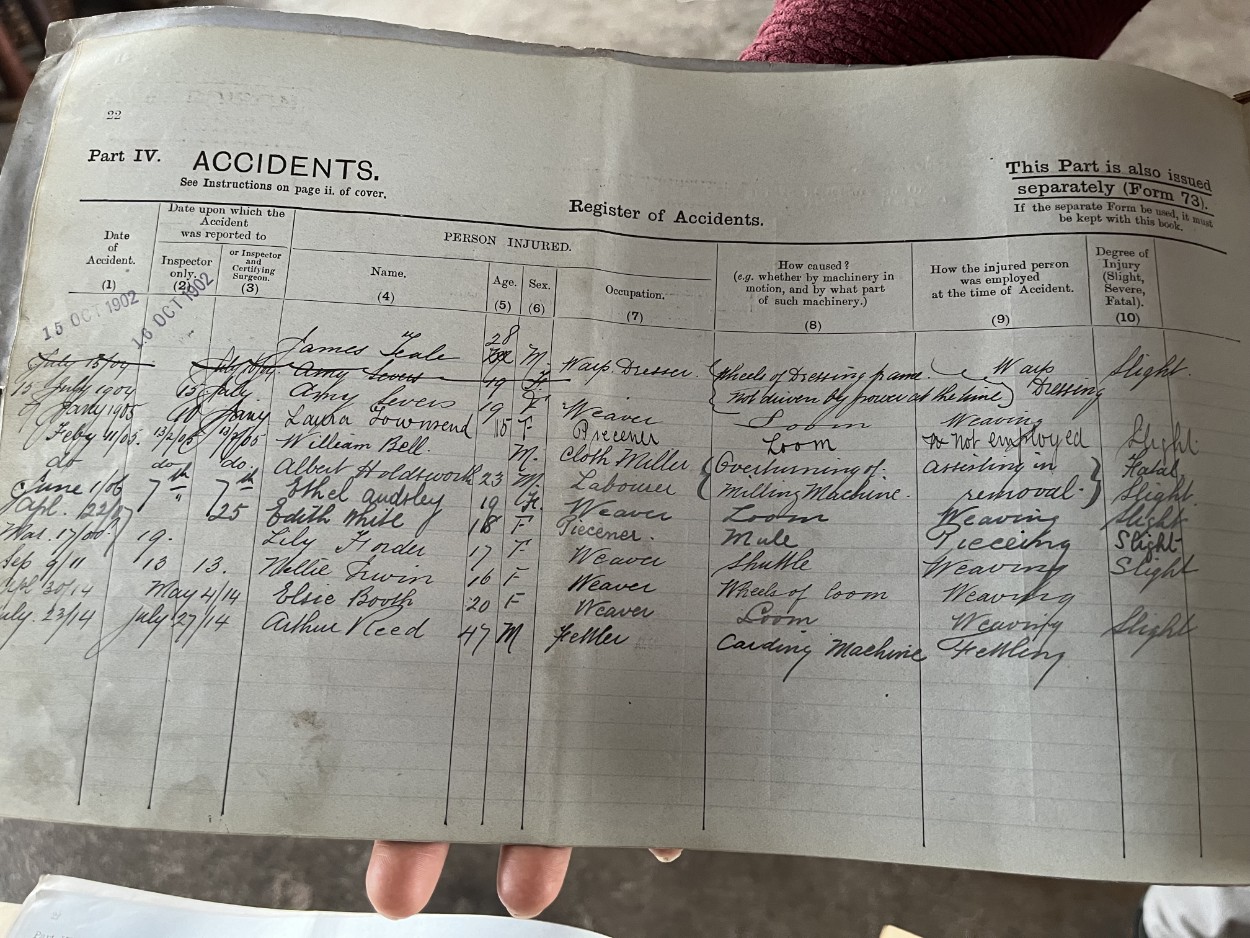 22
Part IV. ACCIDENTS.
See Instructions on page ii. of cover.
This Part is also issued
separately (Form 73).
If the separate Form be used, it must
be kept with this book.
Register of Accidents.
Date of Accident. (1)
Date upon which the Accident was reported to
Inspector only. (2)
or Inspector and Certifying Surgeon. (3)
PERSON INJURED.
Name. (4)
Age. (5)
Sex. (6)
Occupation. (7)
How caused? (e.g. whether by machinery in motion, and by what part of such machinery.) (8)
How the injured person was employed at the time of Accident. (9)
Degree of Injury (Slight, Severe, Fatal). (10)
15 OCT 1902 16 OCT 1902 James Teale 28 M. Warp Dresser. Wheels of Dressing frame Warp Slight.
(Not driven by power at the time) Dressing
July 15/04 July Amy Severs 19 F.
15 July 1904 15 July. Amy Severs 19 F Weaver Loom Weaving
Jany 1905 Jany Laura Townsend 15 F Piecener Loom not employed Slight
Feby 11/05 13/2/05 13/2/05 William Bell. M. Cloth Miller Overturning of Assisting in Fatal
do do do. Albert Holdsworth 23 M. Labourer Milling Machine. removal. Slight
June 1/06 7th 7th Ethel Audsley 19 F. Weaver Loom Weaving Slight
Apl. 22/07 " 25 Edith White 18 F Piecener. Mule Pieceing Slight
Mar. 17/ 19. Lily Forder 17 F Weaver Shuttle Weaving Slight
Sep 9/11 13 13. Nellie Irwin 16 F Weaver Wheels of Loom Weaving
Apl 30/14 May 4/14 Elsie Booth 20 F Weaver Loom Weaving Slight
July. 23/14 July 27/14 Arthur Reed 47 M Fettler Carding Machine Fettling